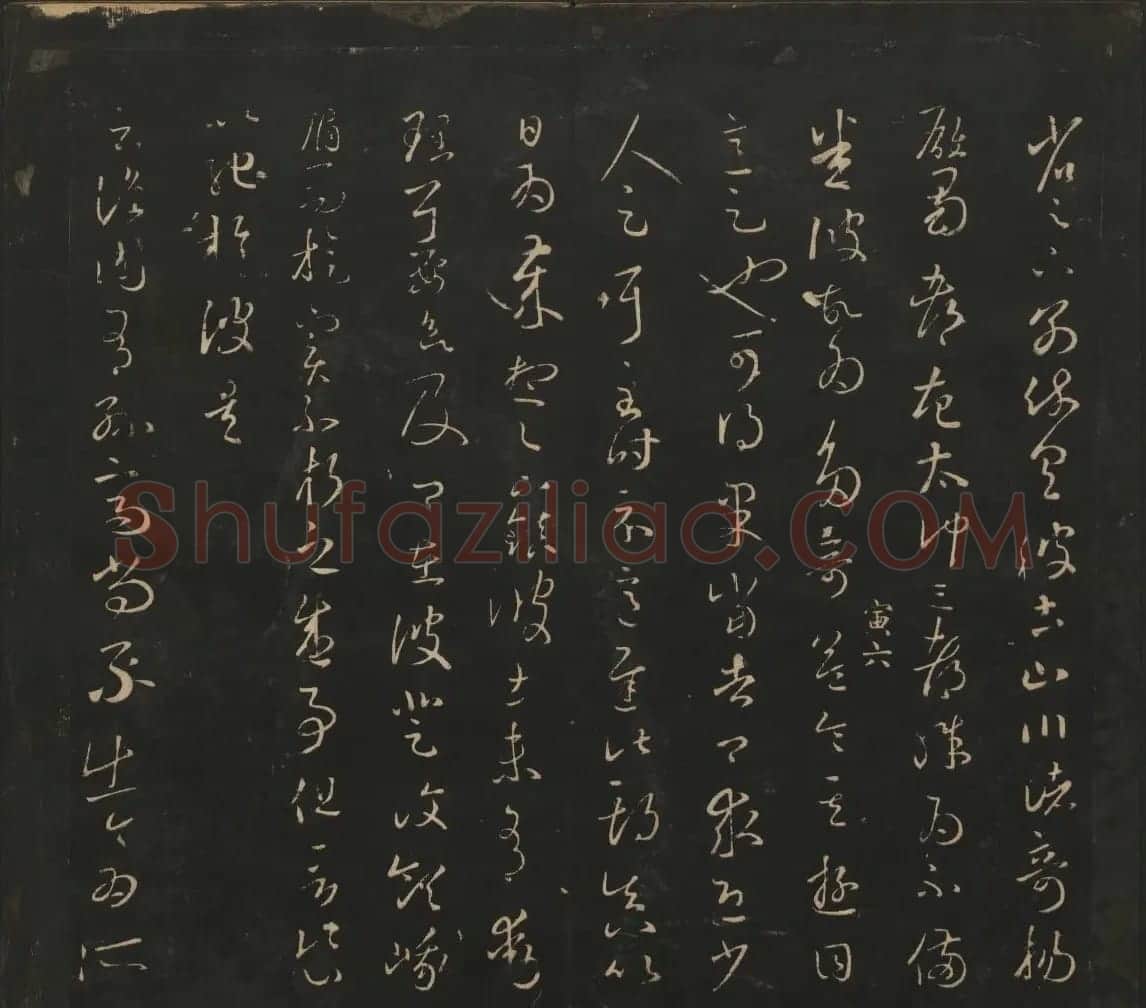 省足下別疏具彼土山川諸奇揚
雄蜀都左太沖三都殊為不備
悉彼故為多奇益令其遊目
寅六
意足也可得果當告卿求迎少
人足耳至時示意遲此期真以
日為歲想足下鎮彼土未有動
理耳要欲及卿在彼登汶領峨
眉而旋實不朽之盛事但言此心
以馳於彼矣
云譙周有孫高尚不出今為所
Shufaziliao.COM